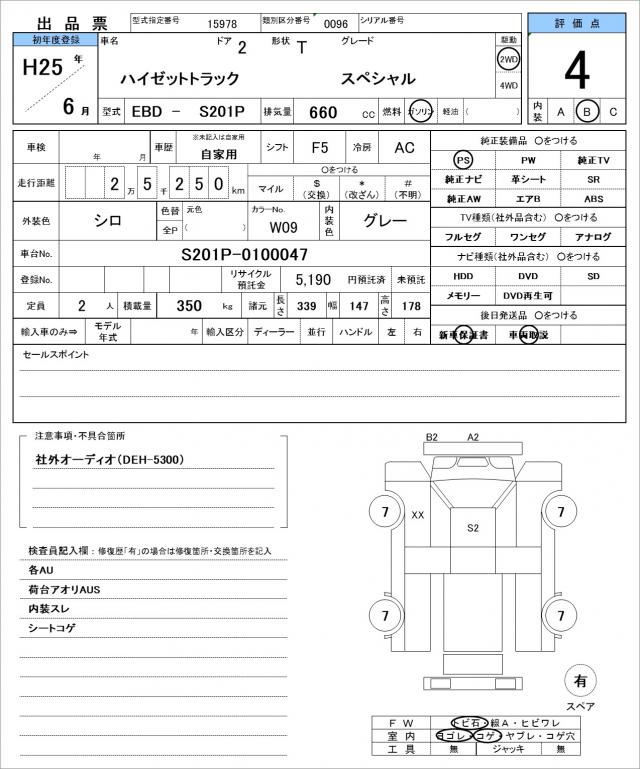 出品票 型式指定番号 15978 類別区分番号 0096 シリアル番号 評価点
初年度登録 車名 ドア 2 形状 T グレード 駆動
H25 年 ハイゼットトラック スペシャル 2WD 4
6 月 4WD
型式 EBD － S201P 排気量 660 cc 燃料 ガソリン 軽油 ( ) 内装 A B C
車検 年 月 車歴 ※未記入は自家用 自家用 シフト F5 冷房 AC 純正装備品 〇をつける
PS PW 純正TV
走行距離 2 万 5 千 2 5 0 km マイル 〇をつける $ (交換) * (改ざん) # (不明) 純正ナビ 革シート SR
純正AW エアB ABS
外装色 シロ 色替 元色 カラーNo. W09 内装色 グレー TV種類(社外品含む) 〇をつける
全P ( ) フルセグ ワンセグ アナログ
車台No. S201P-0100047 ナビ種類(社外品含む) 〇をつける
登録No. リサイクル預託金 5,190 円預託済 未預託 HDD DVD SD
定員 2 人 積載量 350 kg 諸元 長さ 339 幅 147 高さ 178 メモリー DVD再生可
後日発送品 〇をつける
輸入車のみ⇒ モデル年式 年 輸入区分 ディーラー 並行 ハンドル 左 右 新車保証書 車両取説
セールスポイント
注意事項・不具合箇所
社外オーディオ(DEH-5300)
検査員記入欄 : 修復歴「有」の場合は修復箇所・交換箇所を記入
各AU
荷台アオリAUS
内装スレ
シートコゲ
B2 A2
7 XX 7
S2
7 7
有
スペア
FW トビ石・線A・ヒビワレ
室内 ヨゴレ・コゲ・ヤブレ・コゲ穴
工具 無 ジャッキ 無